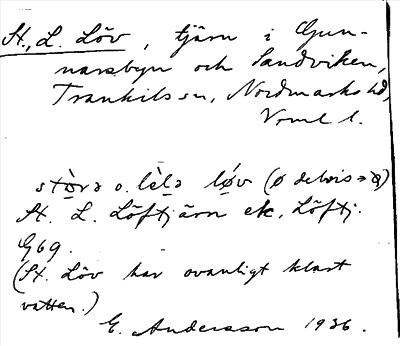 St., L. Löv, tjärn i Gun-
narsbyn och Sandviken,
Trankils sn, Nordmarks hd,
Vrml l.
stòrə o. lèlə løv (ø delvis → 
St. L. Löftjärn ek. Löftj.
G69.
(St. Löv har ovanligt klart
vatten.)
E. Andersson 1936.